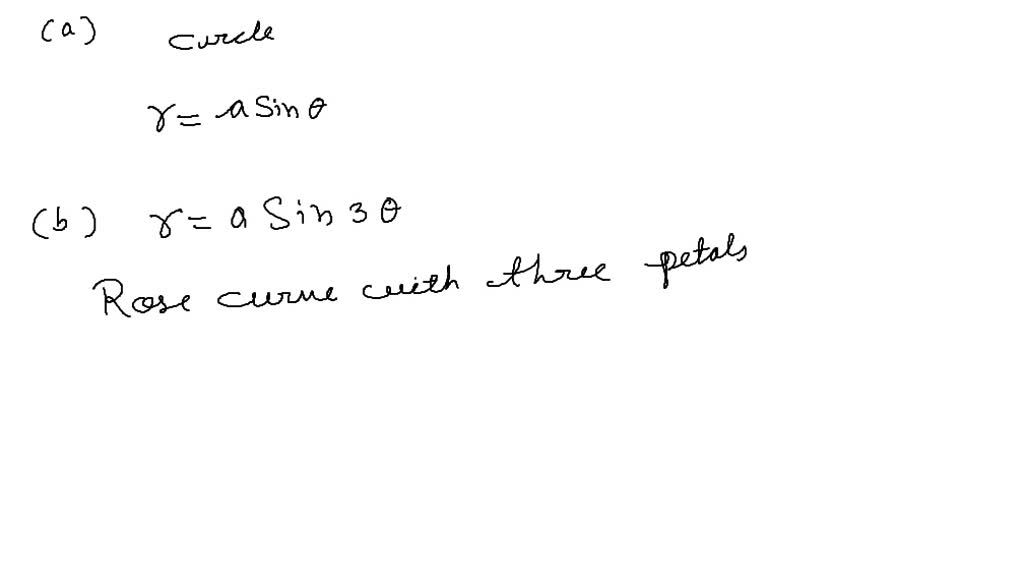 (a) circle
r = a Sin θ
(b) r = a Sin 3 θ
Rose curve with three petals